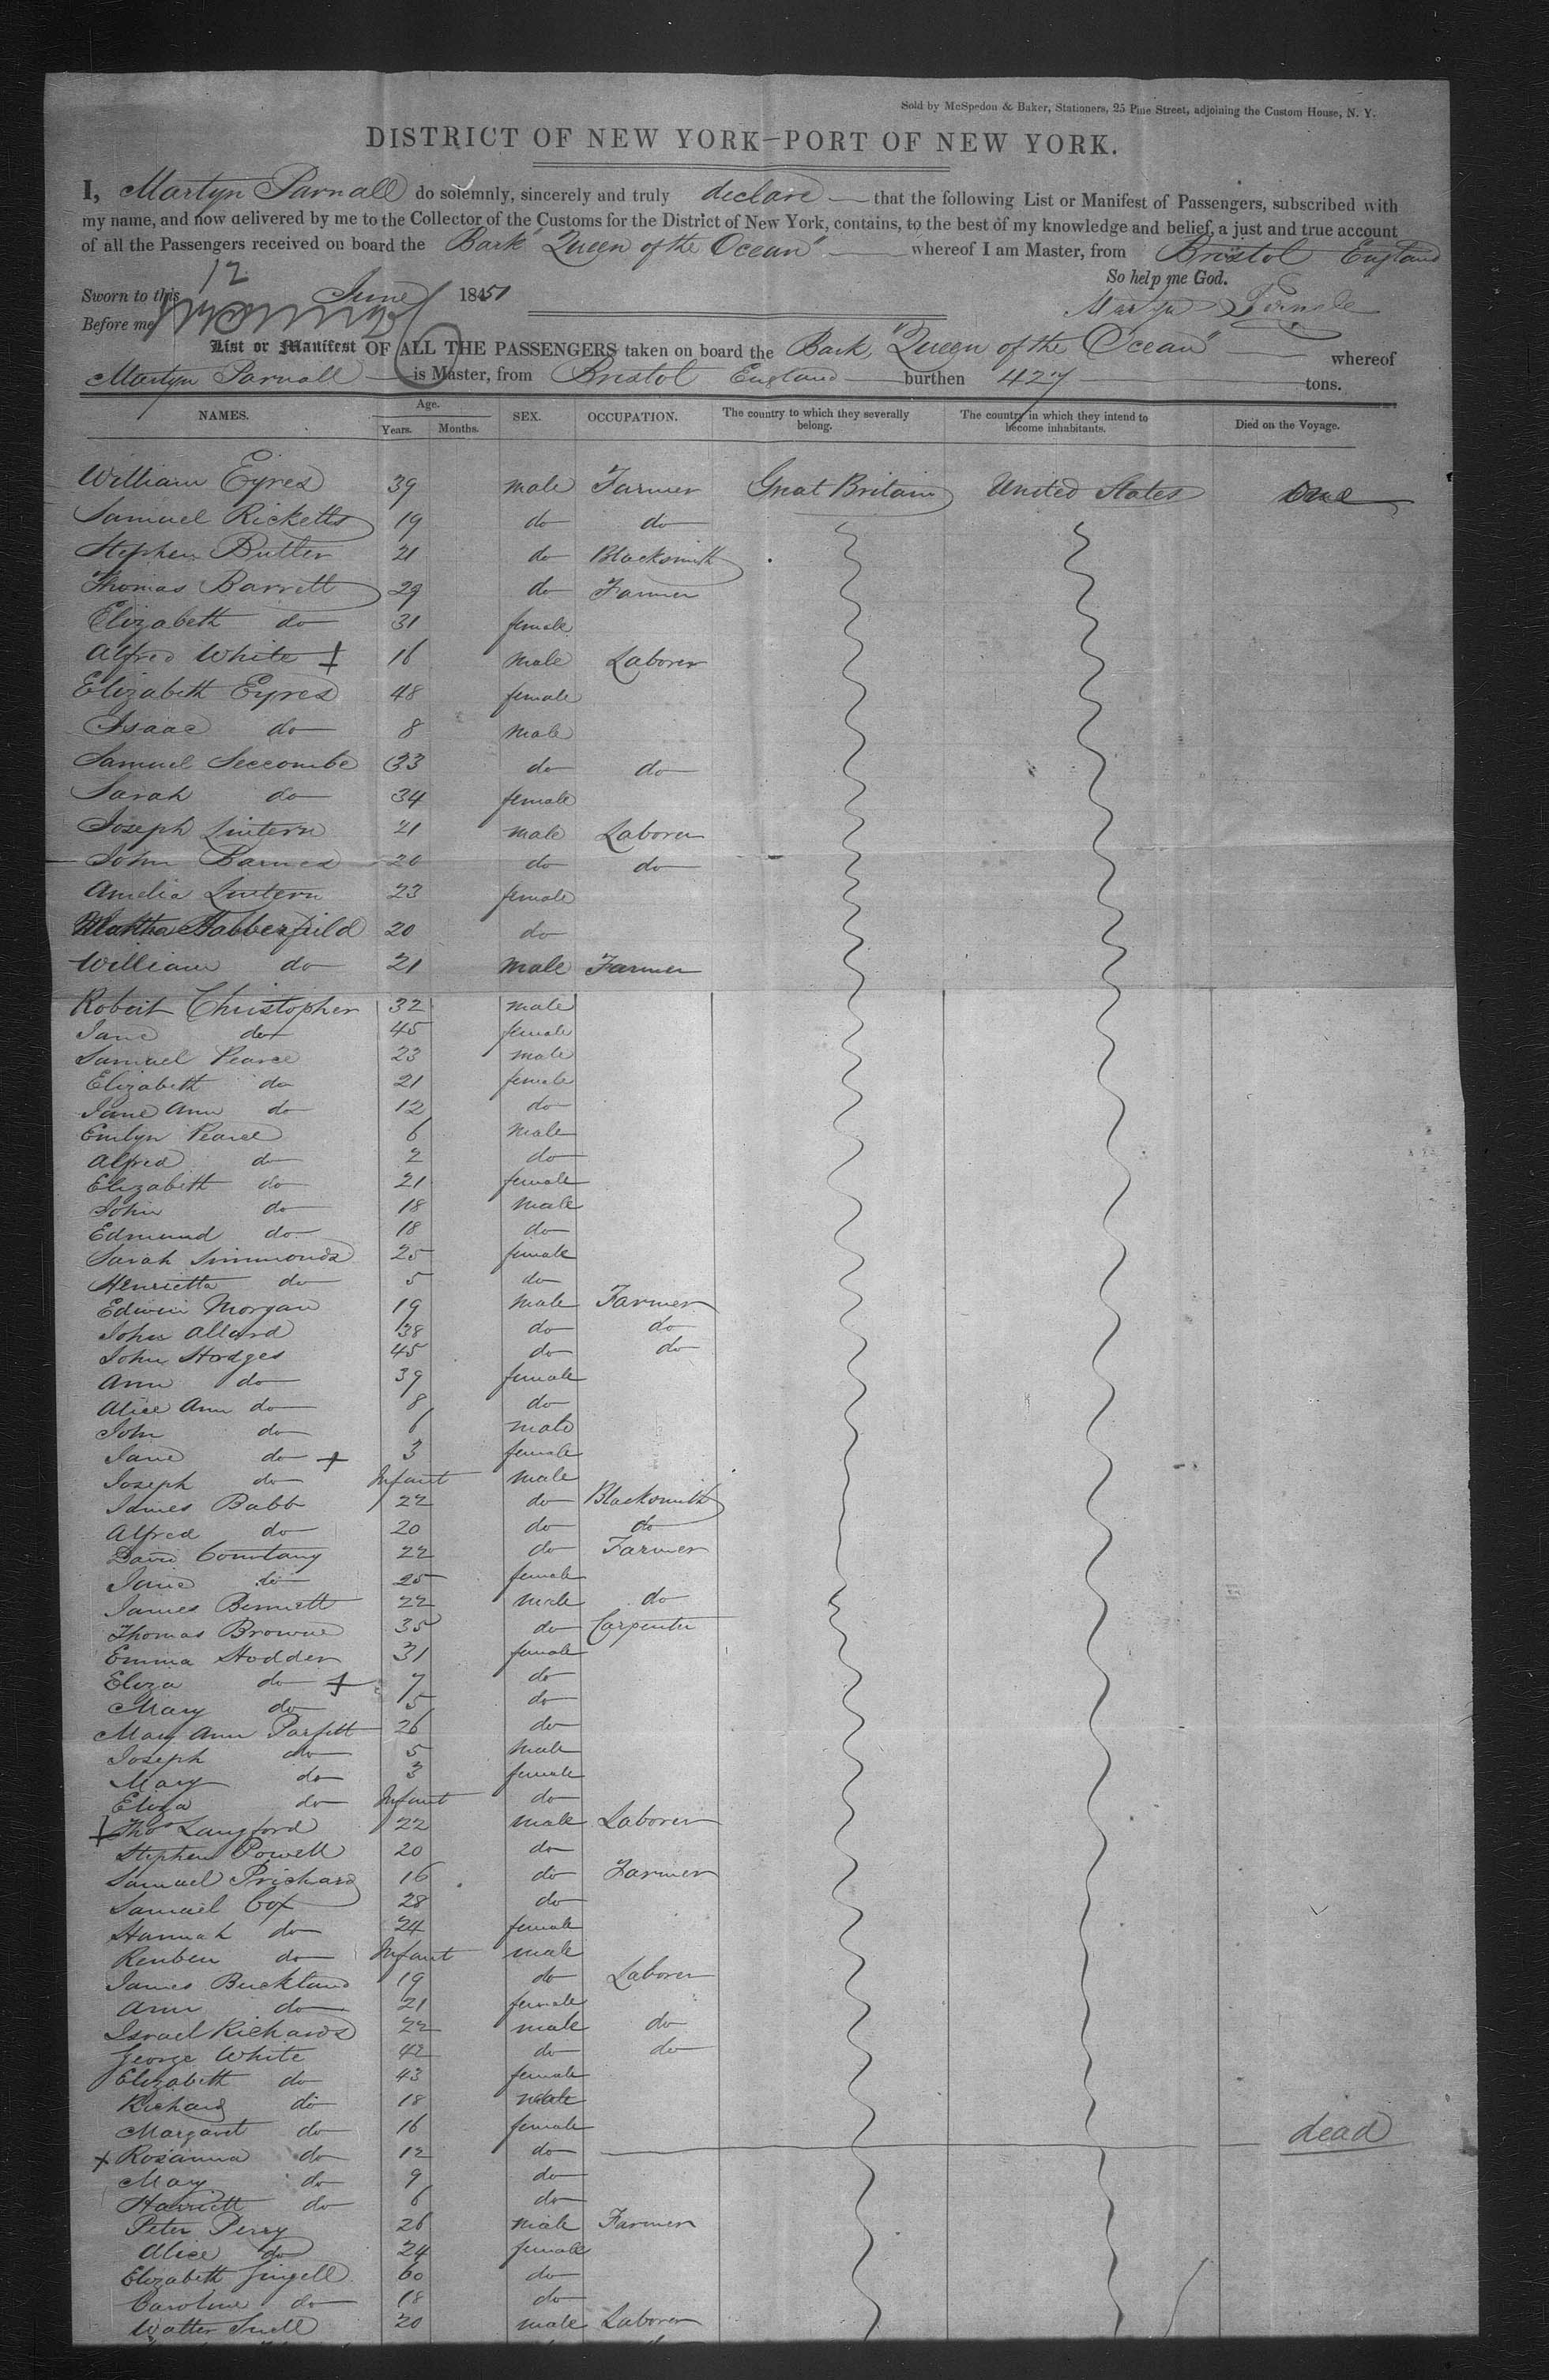 Sold by McSpedon & Baker, Stationers, 25 Pine Street, adjoining the Custom House, N. Y.
DISTRICT OF NEW YORK—PORT OF NEW YORK.
I, Martyn Parnall do solemnly, sincerely and truly declare that the following List or Manifest of Passengers, subscribed with
my name, and now delivered by me to the Collector of the Customs for the District of New York, contains, to the best of my knowledge and belief, a just and true account
of all the Passengers received on board the Bark "Queen of the Ocean" whereof I am Master, from Bristol England
So help me God.
Sworn to this 12 June 1851
Before me
List or Manifest OF ALL THE PASSENGERS taken on board the Bark, "Queen of the Ocean" whereof
Martyn Parnall is Master, from Bristol England burthen 427 tons.
NAMES. Age. Years. Months. SEX. OCCUPATION. The country to which they severally belong. The country in which they intend to become inhabitants. Died on the Voyage.
William Eyres 39 male Farmer Great Britain United States one
Samuel Ricketts 19 do do
Stephen Butler 21 do Blacksmith
Thomas Barrett 29 do Farmer
Elizabeth do 31 female
Alfred White + 16 male Laborer
Elizabeth Eyres 48 female
Isaac do 8 male
Samuel Seccombe 33 do do
Sarah do 34 female
Joseph Lintern 21 male Laborer
John Barnes 20 do do
Amelia Lintern 23 female
Martha Habberfield 20 do
William do 21 male Farmer
Robert Christopher 32 male
Jane do 45 female
Samuel Pearce 23 male
Elizabeth do 21 female
Jane Ann do 12 do
Emlyn Pearce 6 male
Alfred do 2 do
Elizabeth do 21 female
John do 18 male
Edmund do 18 do
Sarah Simmonds 25 female
Henrietta do 5 do
Edwin Morgan 19 male Farmer
John Allard 38 do do
John Hodges 45 do do
Ann do 39 female
Alice Ann do 8 do
John do 6 male
Jane do + 3 female
Joseph do Infant male
James Babb 22 do Blacksmith
Alfred do 20 do do
David 22 do Farmer
Jane do 25 female
James Bennett 22 male do
Thomas Browne 35 do Carpenter
Emma Hodder 31 female
Eliza do + 7 do
Mary do 5 do
Mary Ann Parfitt 26 do
Joseph do 5 male
Mary do 3 female
Eliza do Infant do
+ Thos Langford 22 male Laborer
Stephen Powell 20 do
Samuel Prichard 16 do Farmer
Samuel Cox 28 do
Hannah do 24 female
Reuben do Infant male
James Buckland 19 do Laborer
Ann do 21 female
Israel Richards 22 male do
George White 42 do do
Elizabeth do 43 female
Richard do 18 male
Margaret do 16 female
+ Rosanna do 12 do dead
Mary do 9 do
Harriett do 6 do
Peter Perry 26 male Farmer
Alice do 24 female
Elizabeth Gingell 60 do
Caroline do 18 do
Walter Snell 20 male Laborer